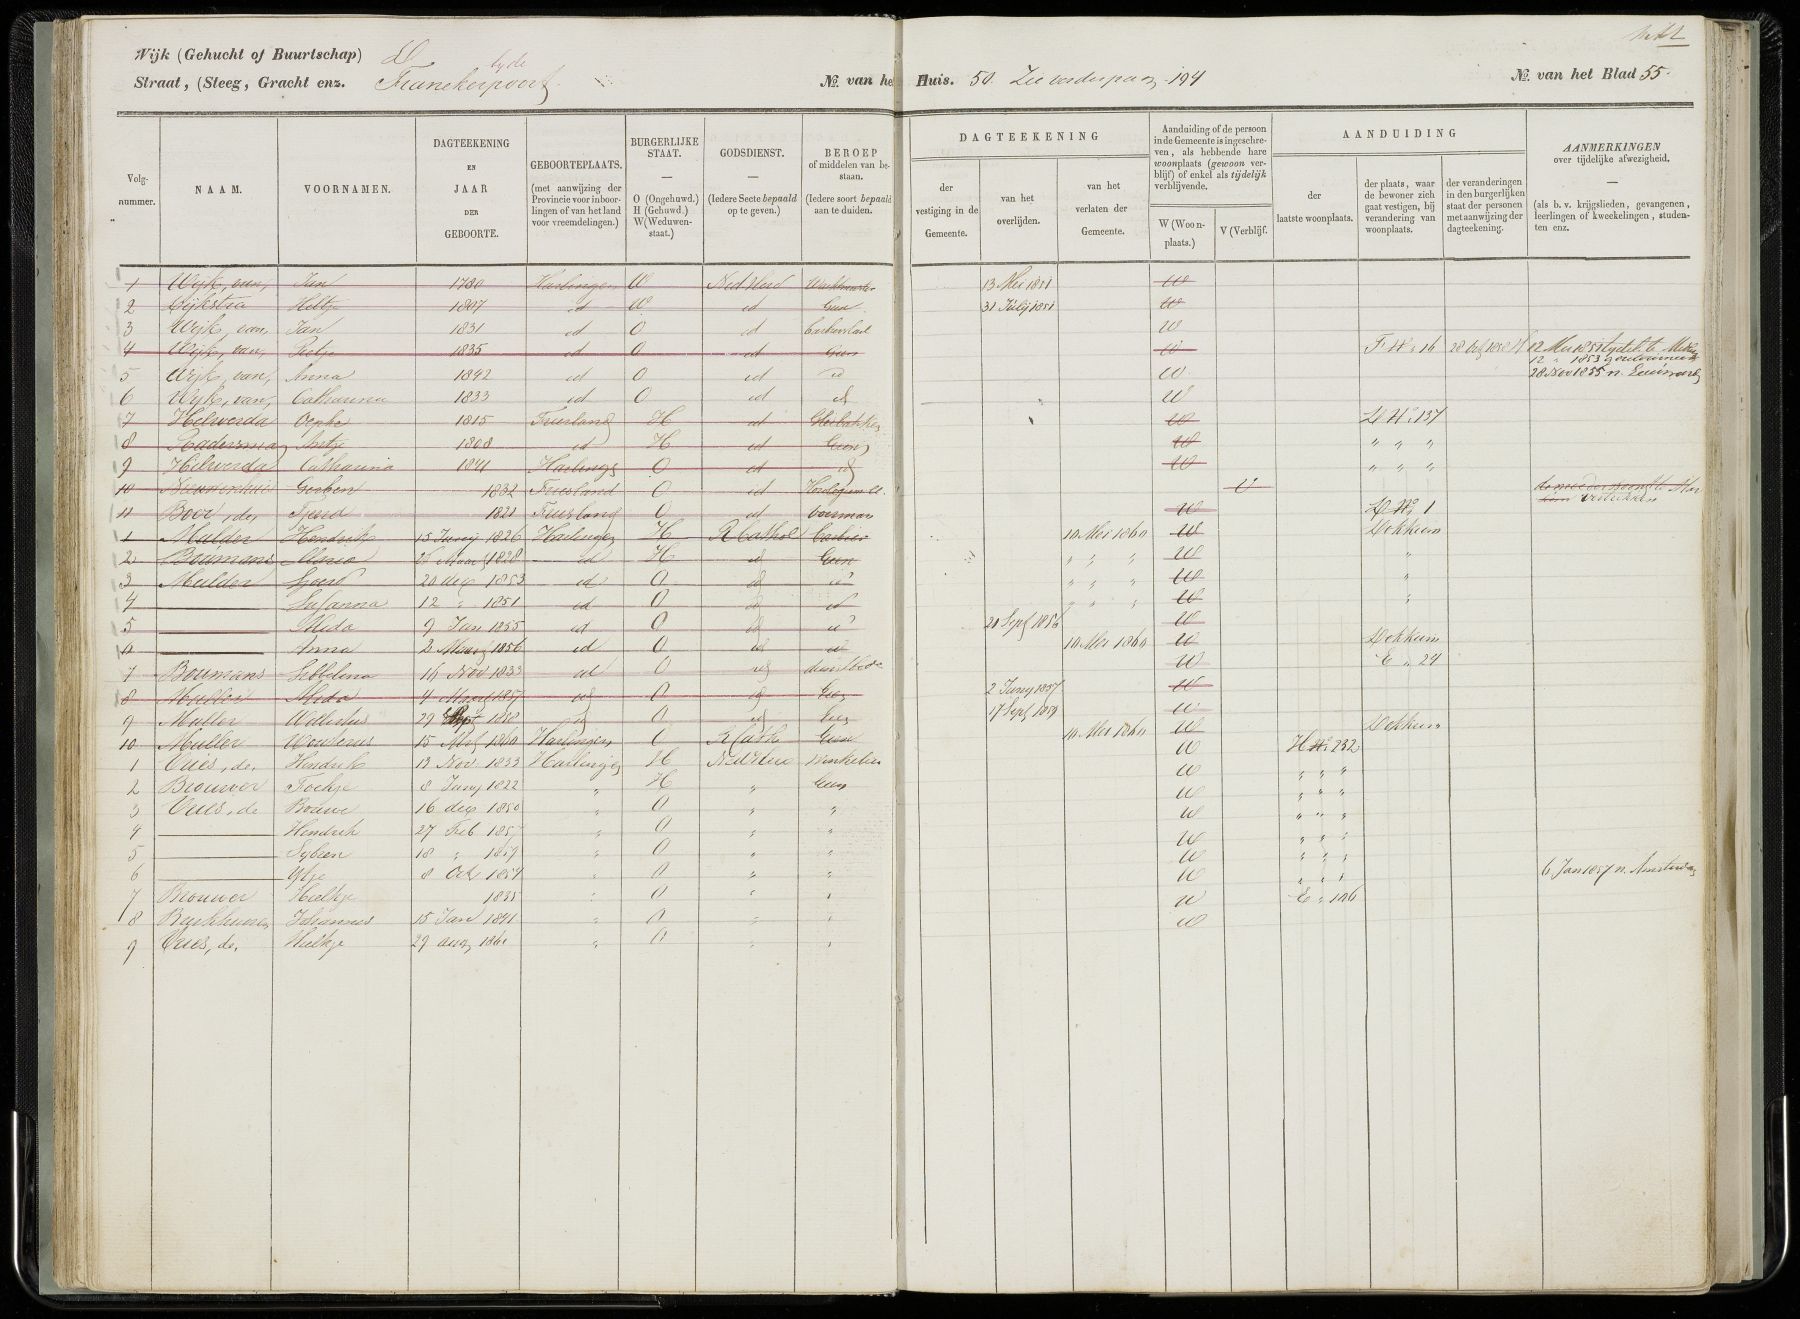 Wijk (Gehucht of Buurtschap) D
Straat, (Steeg, Gracht enz. Franekerpoort
No. van het Huis. 50. Zie verder pag. 194
No. van het Blad 55.
Volgnummer.
NAAM.
VOORNAMEN.
DAGTEEKENING EN JAAR DER GEBOORTE.
GEBOORTEPLAATS. (met aanwijzing der Provincie voor inboorlingen of van het land voor vreemdelingen.)
BURGERLIJKE STAAT. — O (Ongehuwd.) H (Gehuwd.) W (Weduwenstaat.)
GODSDIENST. — (Iedere Secte bepaald op te geven.)
BEROEP of middelen van bestaan. (Iedere soort bepaald aan te duiden.)
DAGTEEKENING
der vestiging in de Gemeente.
van het overlijden.
van het verlaten der Gemeente.
Aanduiding of de persoon in de Gemeente is ingeschreven, als hebbende hare woonplaats (gewoon verblijf) of enkel als tijdelijk verblijvende.
W (Woonplaats.)
V (Verblijf.
AANDUIDING
der laatste woonplaats.
der plaats, waar de bewoner zich gaat vestigen, bij verandering van woonplaats.
der veranderingen in den burgerlijken staat der personen met aanwijzing der dagteekening.
AANMERKINGEN over tijdelijke afwezigheid, — (als b. v. krijgslieden, gevangenen, leerlingen of kweekelingen, studenten enz.
1 Wijk, van, Jan 1780 Harlingen W Ned Herv 13 Mei 1851 W
2 Dijkstra Hiltje 1807 id W id Geen 31 Julij 1851 W
3 Wijk, van, Jan 1831 id O id W
4 Wijk, van, Pietje 1835 id O id Geen W F No. 16
5 Wijk, van, Anna 1842 id O id id W 28 Nov 1855 n.
6 Wijk, van, Catharina 1833 id O id id W
7 Helwerda 1815 Friesland H id W D No. 137
8 1808 id H id Geen W " " "
9 Helwerda Catharina 1841 Harling O id id W " " "
10 Nieuwenhuis Gerben 1832 Friesland O id V
11 Boer, de, Tjeerd 1821 Friesland O id W D No. 1
1 Mulder Hendrik 15 Junij 1826 Harlingen H R Cathol 10 Mei 1860 W Dokkum
2 Boumans Maria 26 Maart 1828 id H id Geen " " " W "
3 Mulder Sjoerd 20 dec 1853 id O id id " " " W "
4 — Susanna 12 " 1851 id O id id " " " W "
5 — Alida 9 Jan 1855 id O id id 20 Sept 1856 W
6 — Anna 2 Maart 1856 id O id id 10 Mei 1860 W Dokkum
7 Boumans Sibbelina 16 Nov 1833 id O id W E " 24
8 Muller Alida 4 Maart 1857 id O id Geen 2 Junij 1857 W
9 Muller Wilhelmus 29 Sept 1858 id O id Geen 17 Sept 1859 W
10 Muller Wouterus 15 1860 Harlingen O R Cath Geen 10 Mei 1860 W Dokkum
1 Vries, de, Hendrik 13 Nov 1833 Harlingen H Ned Herv Winkelier W H No. 232
2 Brouwer Foekje 8 Junij 1822 " H " Geen W " " "
3 Vries, de Bouwe 16 dec 1850 " O " " W " " "
4 — Hendrik 27 Feb 1857 " O " " W " " "
5 — Sybren 18 " 1859 " O " " W " " "
6 — Ytje 8 Oct 1854 " O " " W " " "
7 Brouwer Hieltje 1835 " O " " W " " " 6 Jan 1857 n. Amsterdam
8 Johannes 15 Jan 1841 " O " " W E " 106
9 Vries, de, Hieltje 29 aug 1861 " O " " W